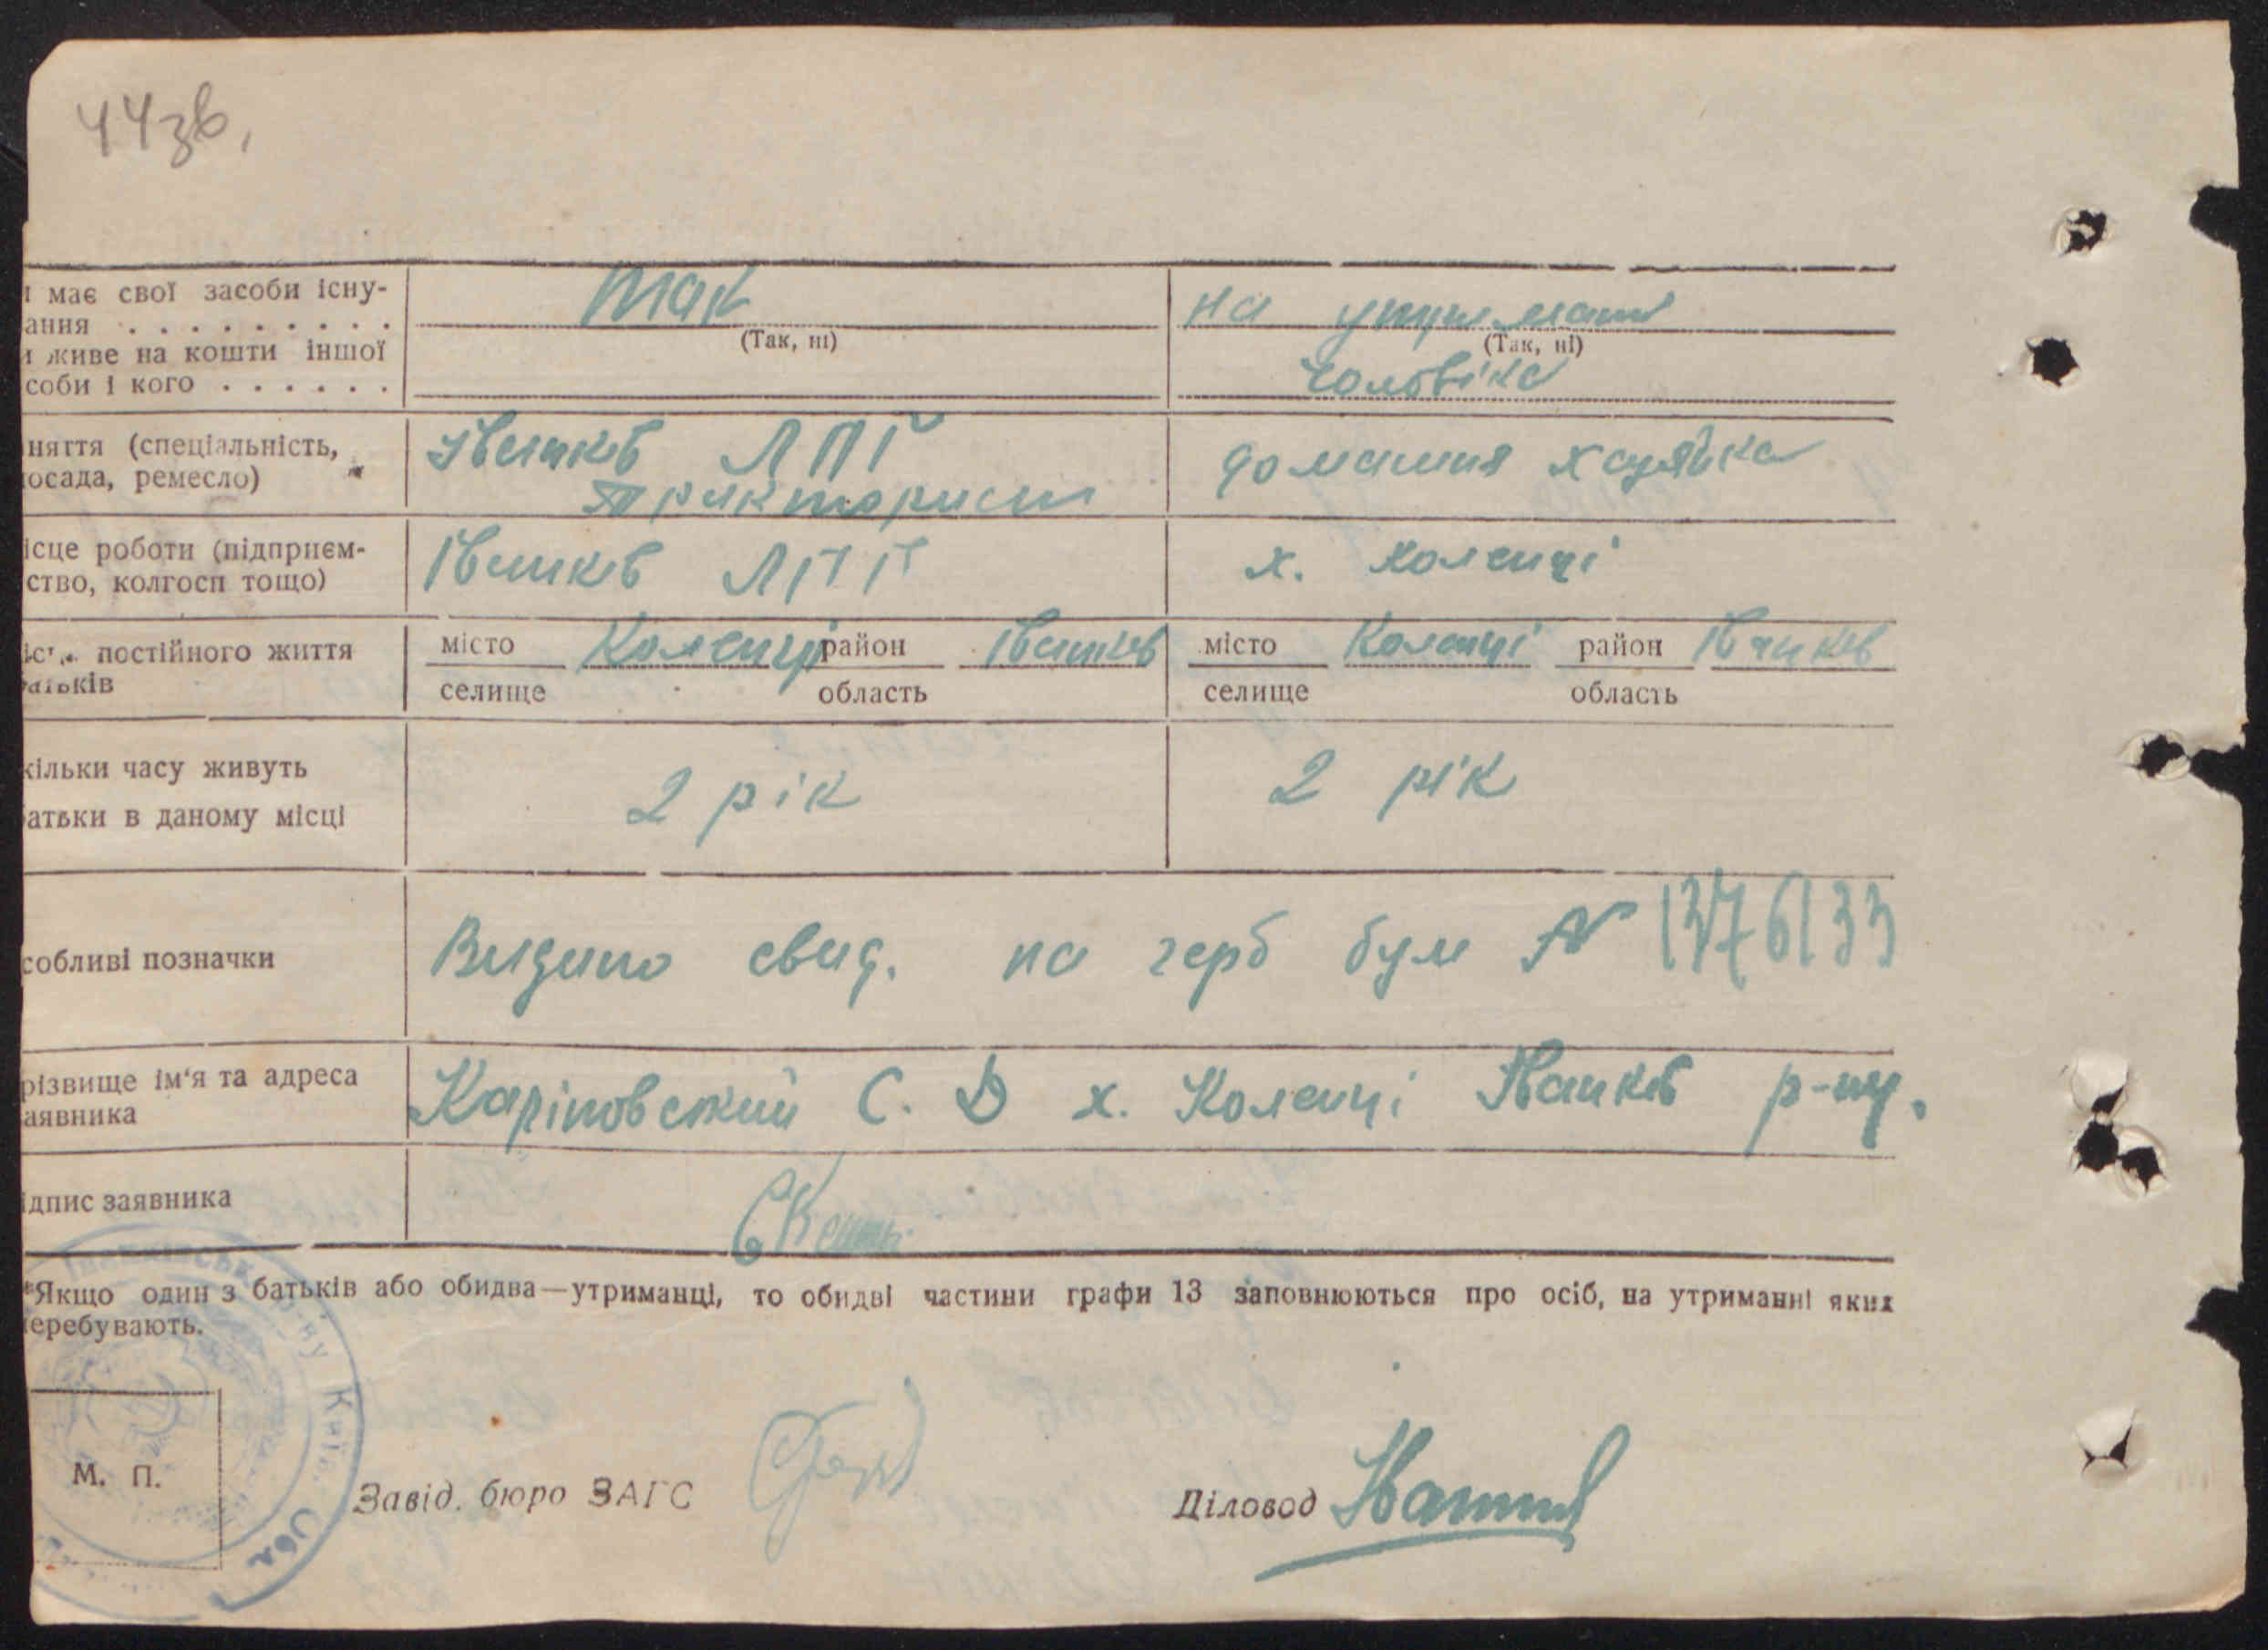 44зв.
и має свої засоби існу- так на утриманні
ання . . . . . . . . . (Так, ні) (Так, ні)
и живе на кошти іншої чоловіка
соби і кого . . . . . .
няття (спеціальність, Іванків ЛПГ домашня хазяйка
осада, ремесло) тракторист
ісце роботи (підприєм- Іванків ЛПГ х. Коленці
ство, колгосп тощо)
іс постійного життя місто Коленці район Іванків місто Коленці район Іванків
атьків селище область селище область
кільки часу живуть 2 рік 2 рік
атьки в даному місці
собливі позначки Видано свид. на герб бум N 1376133
різвище ім'я та адреса Каріповський С. Д х. Коленці Іванків р-ну.
аявника
ідпис заявника
*Якщо один з батьків або обидва—утриманці, то обидві частини графи 13 заповнюються про осіб, на утриманні яких
перебувають.
М. П.
Завід. бюро ЗАГС Діловод